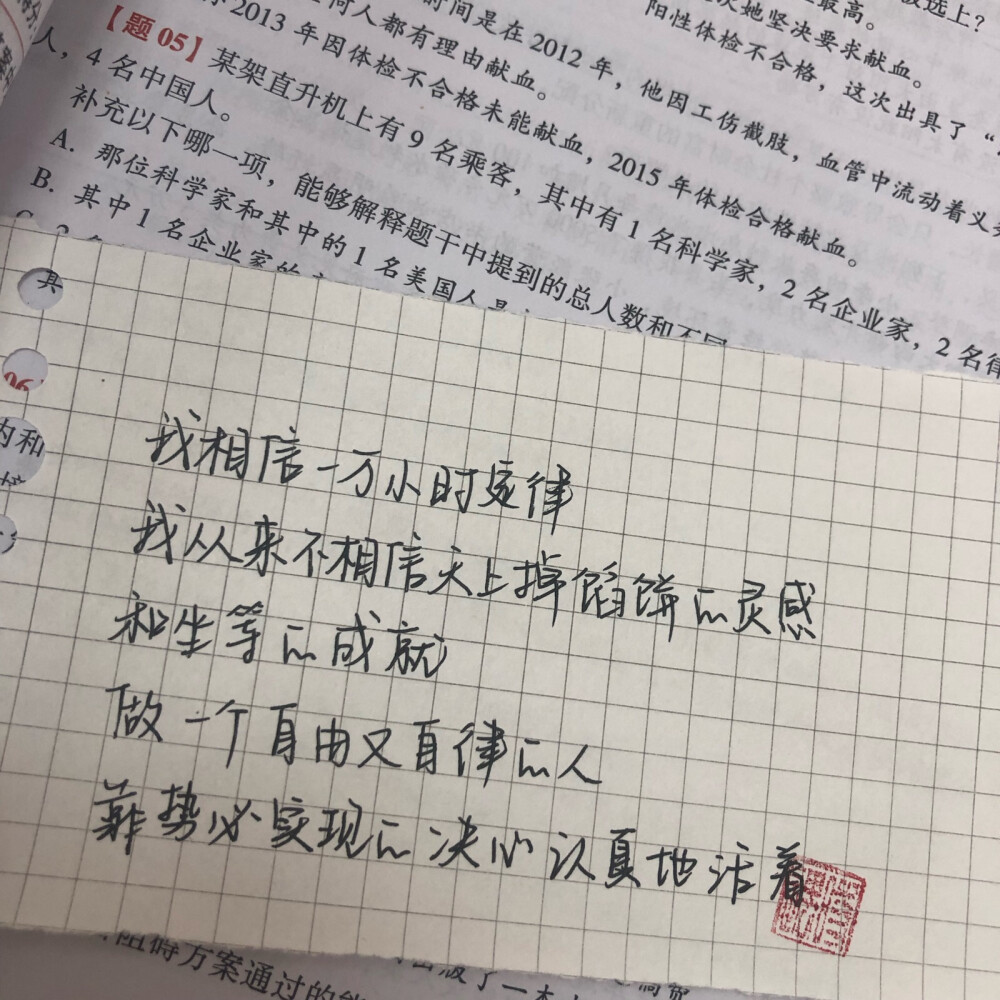 时间是在2012年，他因工伤截肢，血管中流动着
何人都有理由献血。
2013年因体检不合格未能献血，2015年体检合格献血。
次她坚决要求献血。
阳性体检不合格，这次出具了“
最高。
选上？
【题05】某架直升机上有9名乘客，其中有1名科学家，2名企业家，2名律
人，4名中国人。
补充以下哪一项，能够解释题干中提到的总人数和不同
A. 那位科学家和其中的1名美国人是
B. 其中1名企业家的
其
06
内和
我相信一万小时定律
我从来不相信天上掉馅饼的灵感
和坐等的成就
做一个自由又自律的人
靠势必实现的决心认真地活着
阻碍方案通过的